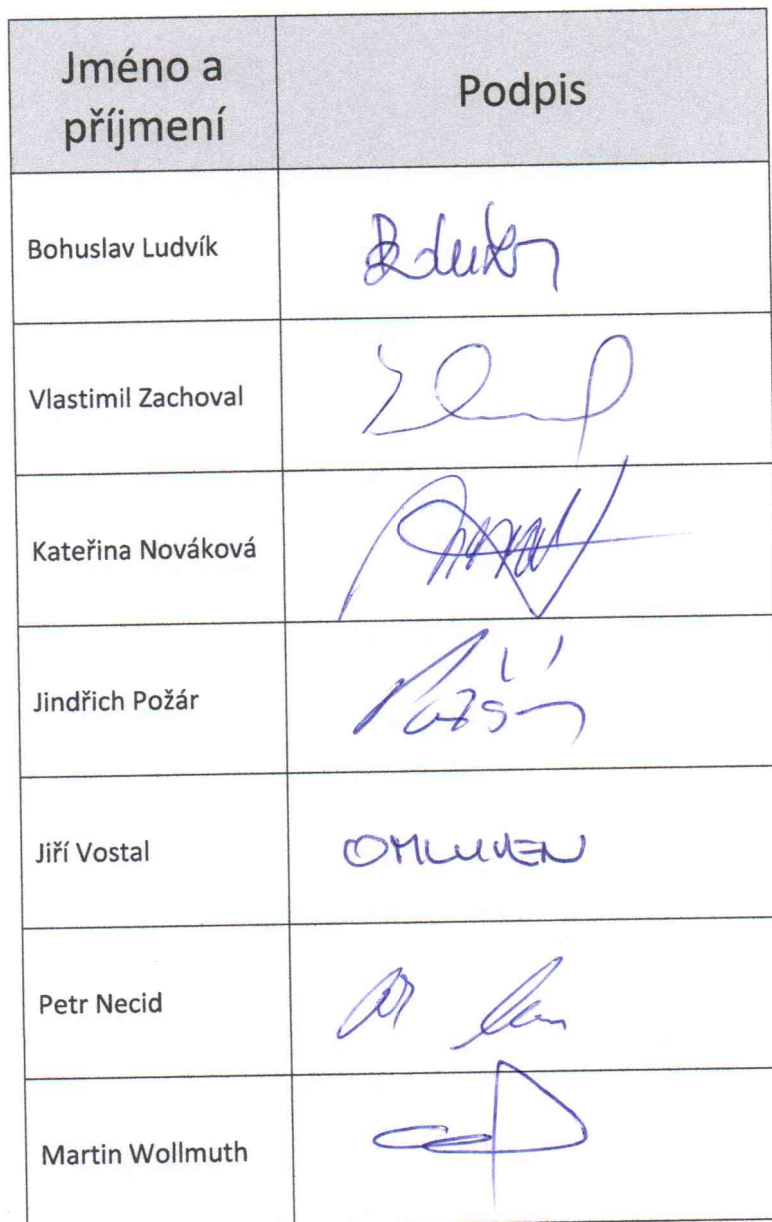 Jméno a
příjmení
Podpis
Bohuslav Ludvík
Vlastimil Zachoval
Kateřina Nováková
Jindřich Požár
Jiří Vostal
OMLUVEN
Petr Necid
Martin Wollmuth